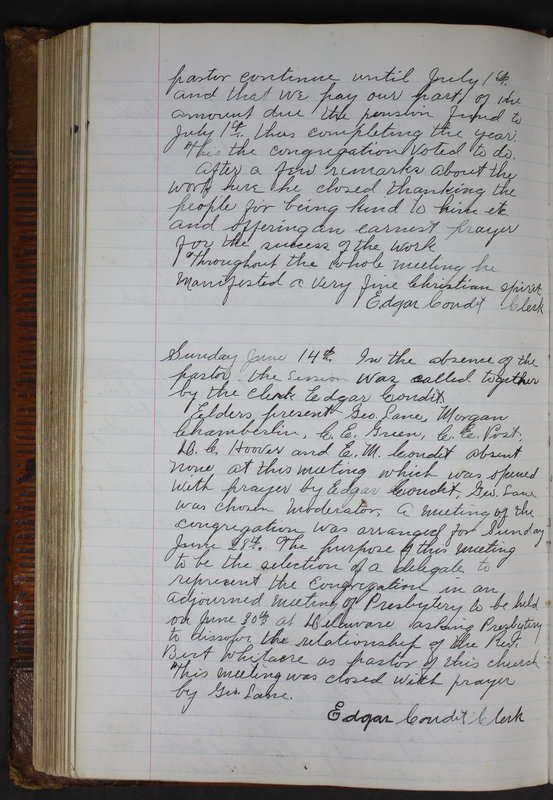 pastor continue until July 1st.
and that we pay our part of the
amount due the pension fund to
July 1st. thus completing the year.
This the congregation voted to do.
After a few remarks about the
work here he closed thanking the
people for being kind to him etc
and offering an earnest prayer
for the success of the work
Throughout the whole meeting he
manifested a very fine Christian spirit
Edgar Condit Clerk
Sunday June 14th. In the absence of the
pastor the Session was called together
by the clerk Edgar Condit
Elders present Geo. Lane, Morgan
Chamberlin, C. E. Green, C. C. Post,
D. C. Hoover and E. M. Condit absent
none at this meeting which was opened
with prayer by Edgar Condit, Geo. Lane
was chosen moderator. A meeting of the
congregation was arranged for Sunday
June 28th. The purpose of this meeting
to be the selection of a delegate to
represent the congregation in an
adjourned meeting of Presbytery to be held
on June 30th at Delaware asking Presbytery
to dissolve the relationship of the Rev.
Bert Whitacre as pastor of this church
This meeting was closed with prayer
by Geo. Lane.
Edgar Condit Clerk